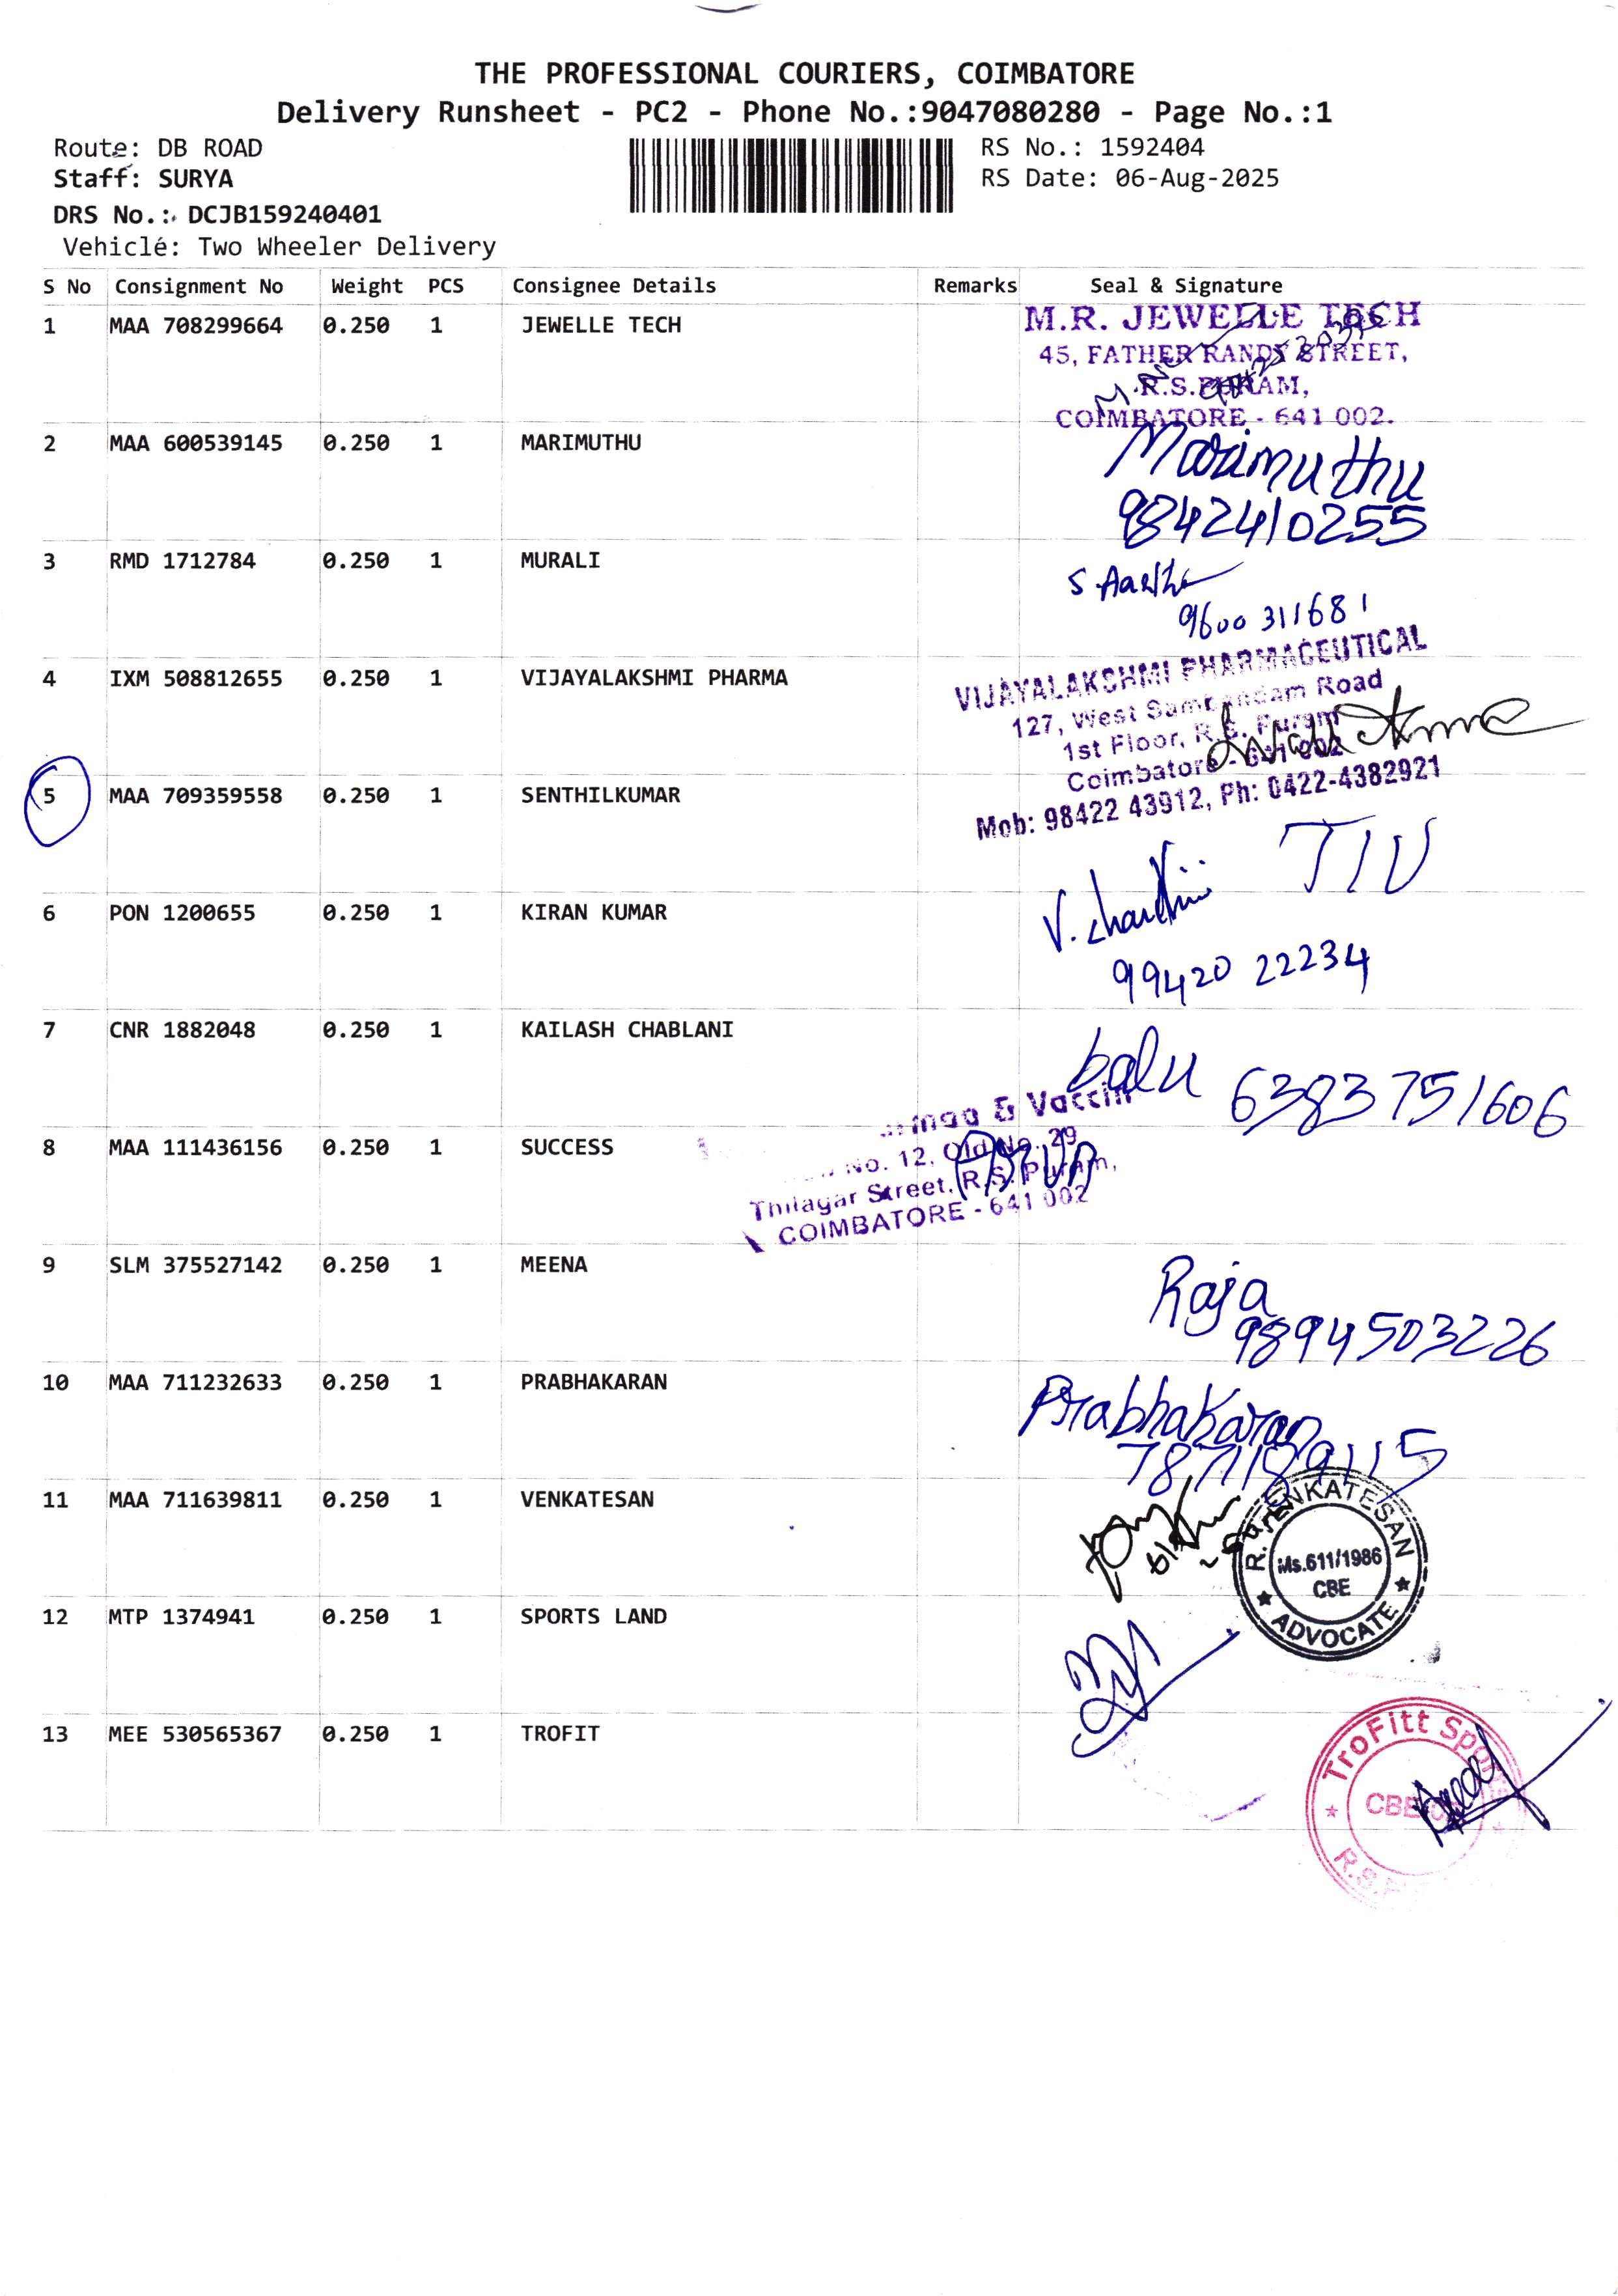 THE PROFESSIONAL COURIERS, COIMBATORE
Delivery Runsheet - PC2 - Phone No.:9047080280 - Page No.:1
Route: DB ROAD
Staff: SURYA
DRS No.: DCJB159240401
Vehicle: Two Wheeler Delivery
RS No.: 1592404
RS Date: 06-Aug-2025
S No Consignment No Weight PCS Consignee Details Remarks Seal & Signature
1 MAA 708299664 0.250 1 JEWELLE TECH
M.R. JEWELLE TECH
45, FATHER RANDY STREET,
R.S.PURAM,
COIMBATORE - 641 002.
2 MAA 600539145 0.250 1 MARIMUTHU
Marimuthu
9842410255
3 RMD 1712784 0.250 1 MURALI
9600 311681
4 IXM 508812655 0.250 1 VIJAYALAKSHMI PHARMA
VIJAYALAKSHMI PHARMACEUTICAL
127, West Sambandam Road
1st Floor, R.S. Puram
Coimbatore - 641 002
Mob: 98422 43912, Ph: 0422-4382921
5 MAA 709359558 0.250 1 SENTHILKUMAR
6 PON 1200655 0.250 1 KIRAN KUMAR
99420 22234
7 CNR 1882048 0.250 1 KAILASH CHABLANI
balu 6383751606
8 MAA 111436156 0.250 1 SUCCESS
& Vaccin
No. 12, Old No. 29
Thilagar Street, R.S. Puram,
COIMBATORE - 641 002
9 SLM 375527142 0.250 1 MEENA
Raja
9894503226
10 MAA 711232633 0.250 1 PRABHAKARAN
Prabhakaran
11 MAA 711639811 0.250 1 VENKATESAN
R. VENKATESAN
Ms.611/1986
CBE
ADVOCATE
12 MTP 1374941 0.250 1 SPORTS LAND
13 MEE 530565367 0.250 1 TROFIT
TroFitt
CBE
R.S.